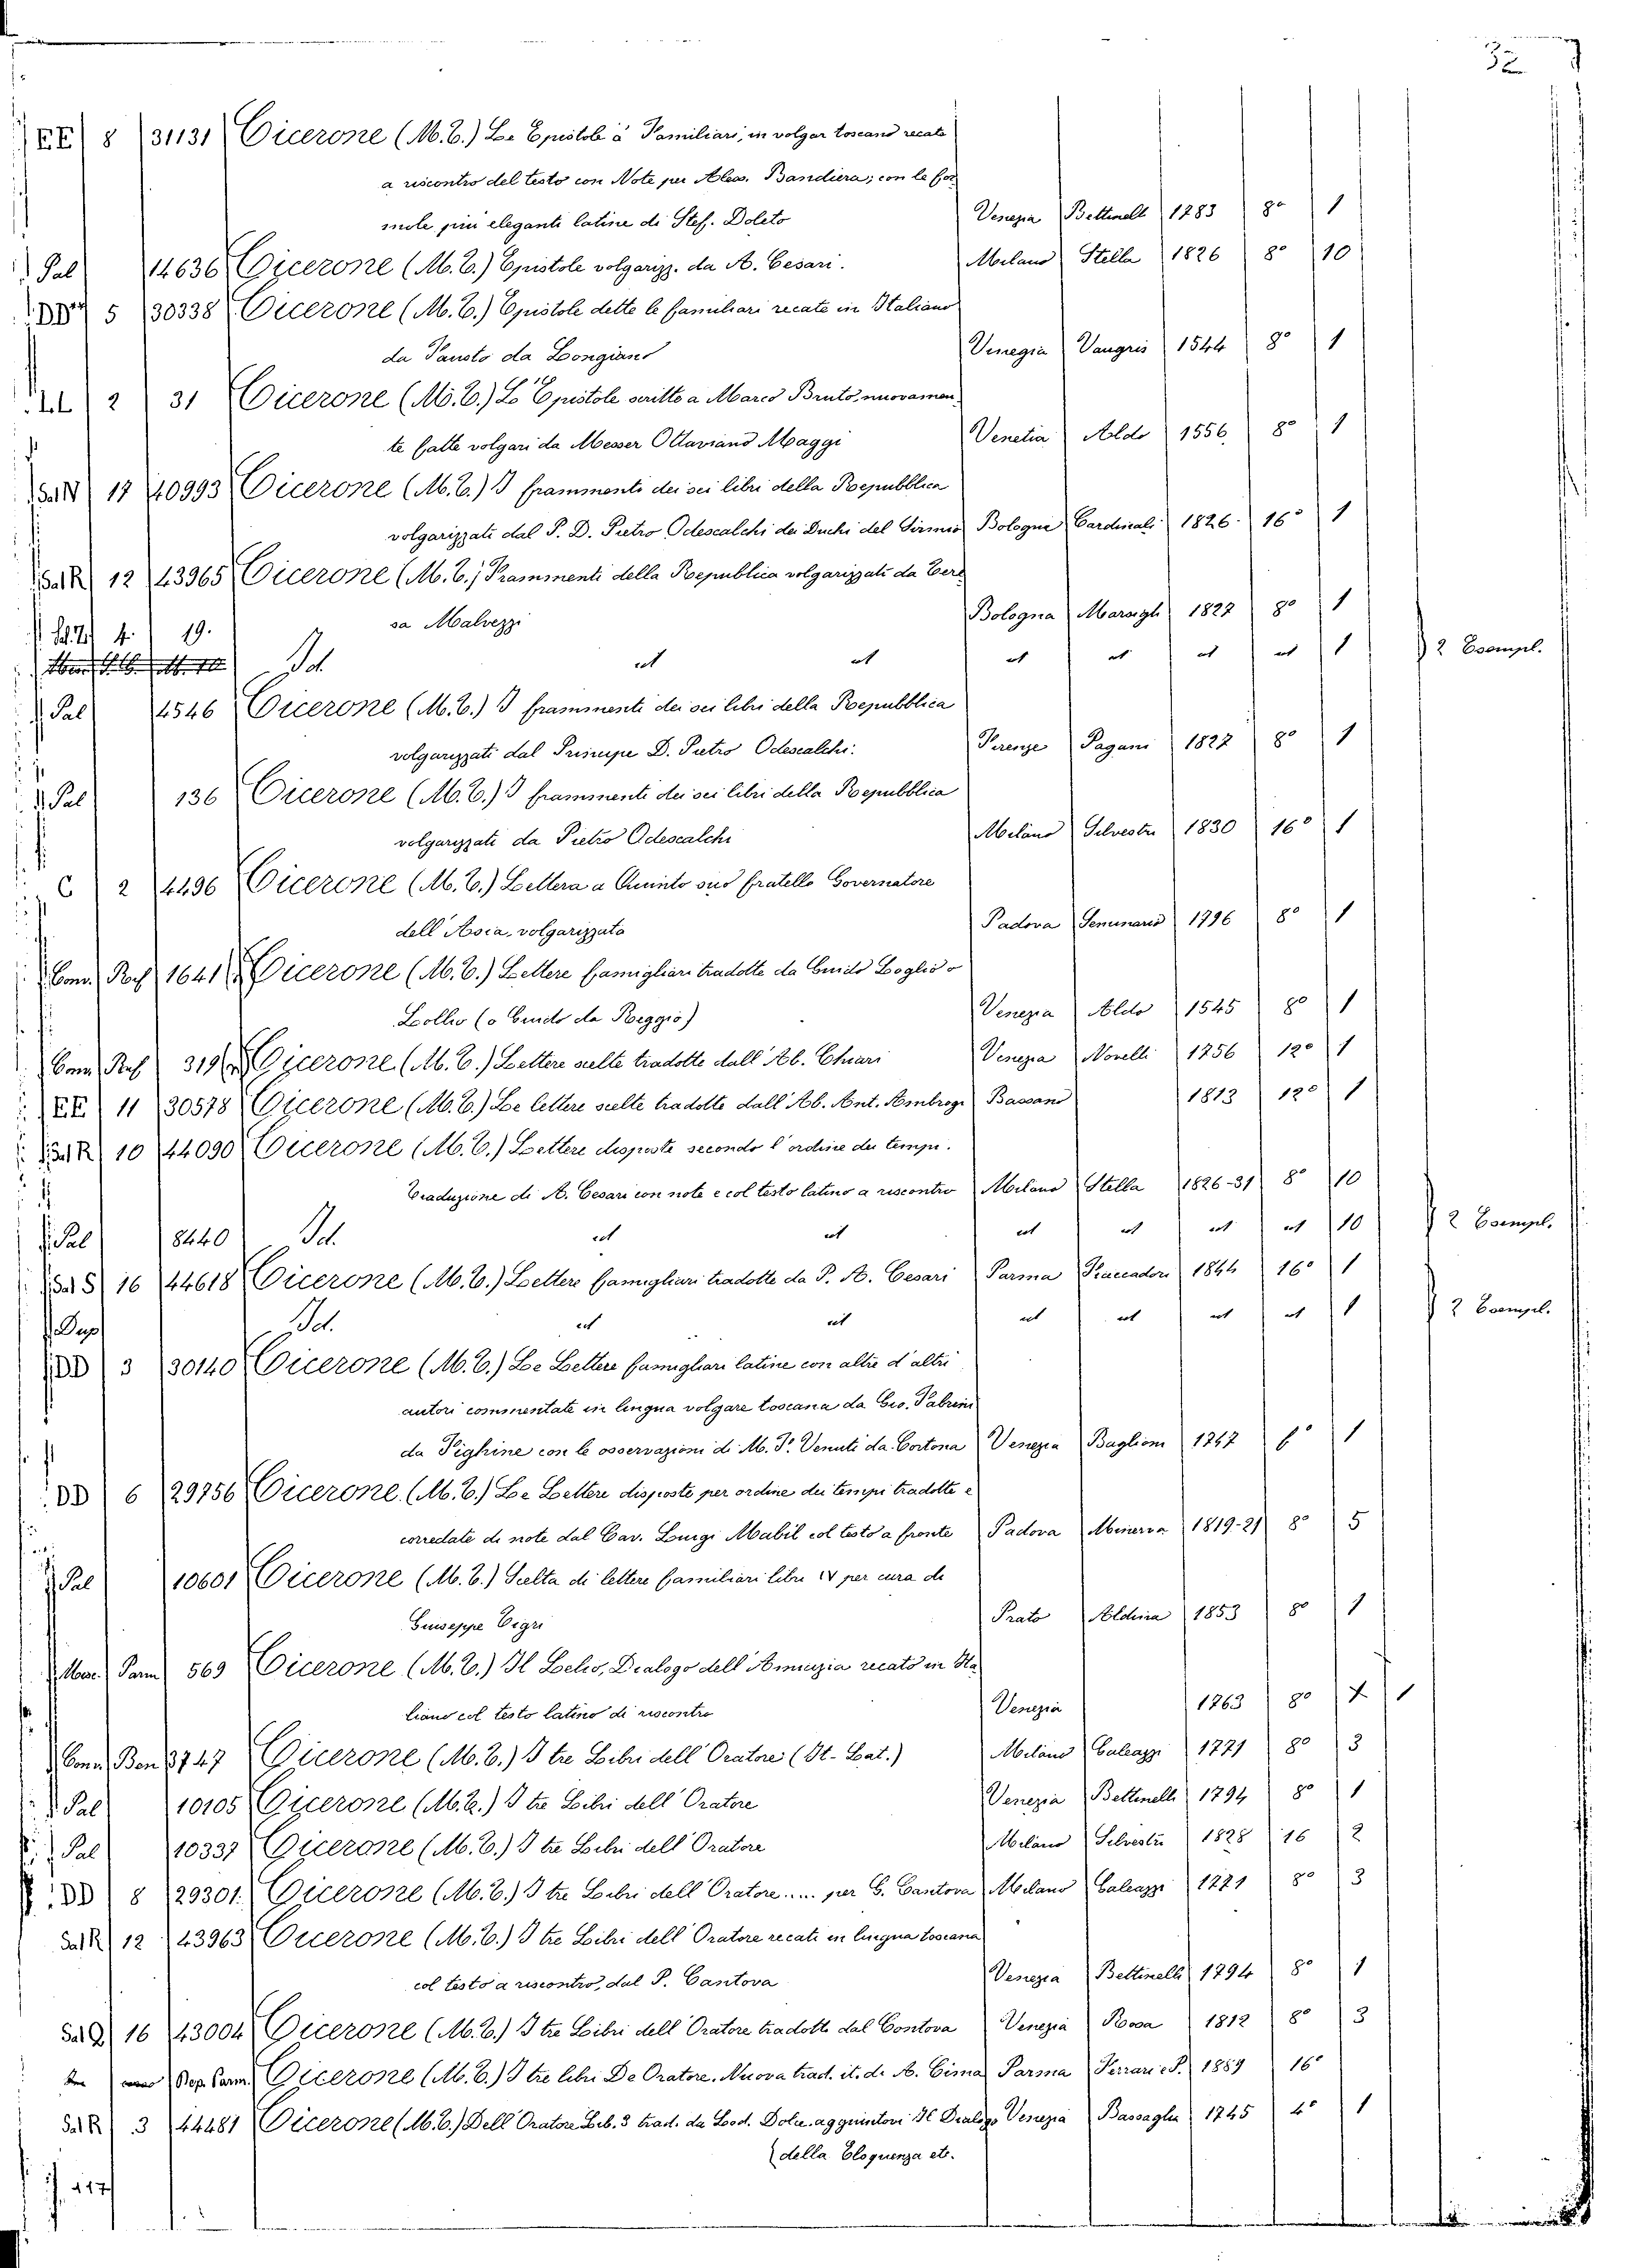 32
EE 8 31131 Cicerone (M. C.) Le Epistole a' Familiari, in volgar toscano recate
a riscontro del testo con Note per Aless. Bandiera; con le for
mole più eleganti latine di Stef. Doleto Venezia Bettinelli 1783 8º 1
Pal 14636 Cicerone (M. C.) Epistole volgarizz. da A. Cesari. Milano Stella 1826 8º 10
DD 5 30338 Cicerone (M. C.) Epistole dette le familiari recate in Italiano
da Fausto da Longiano Venegia Vaugris 1544 8º 1
LL 2 31 Cicerone (M. C.) Le Epistole scritte a Marco Bruto, nuovamen
te fatte volgari da Messer Ottaviano Maggi Venetia Aldo 1556 8º 1
Sal N 17 40993 Cicerone (M. C.) I frammenti dei sei libri della Repubblica
volgarizzati dal P. D. Pietro Odescalchi dei Duchi del Sirmio Bologna Cardinali 1826 16º 1
Sal R 12 43965 Cicerone (M. C.) Frammenti della Republica volgarizzati da Tere
sa Malvezzi Bologna Marsigli 1827 8º 1
4. 19. Id. id id id id id id 1 2 Esempl.
Pal 4546 Cicerone (M. C.) I frammenti dei sei libri della Repubblica
volgarizzati dal Principe D. Pietro Odescalchi. Firenze Pagani 1827 8º 1
Pal 136 Cicerone (M. C.) I frammenti dei sei libri della Repubblica
volgarizzati da Pietro Odescalchi Milano Silvestri 1830 16º 1
C 2 4496 Cicerone (M. C.) Lettera a Quinto suo fratello Governatore
dell'Asia, volgarizzata Padova Seminario 1796 8º 1
Conv. Rof 1641 Cicerone (M. C.) Lettere famigliari tradotte da Guido Loglio o
Lollio (o Guido da Reggio) Venezia Aldo 1545 8º 1
Conv. Rof 319 Cicerone (M. C.) Lettere scelte tradotte dall'Ab. Chiari Venezia Novelli 1756 12º 1
EE 11 30578 Cicerone (M. C.) Le lettere scelte tradotte dall'Ab. Ant. Ambrogi Bassano 1813 12º 1
Sal R 10 44090 Cicerone (M. C.) Lettere disposte secondo l'ordine dei tempi.
Traduzione di A. Cesari con note e col testo latino a riscontro Milano Stella 1826-31 8º 10
Pal 8440 Id. id id id id id id 10 2 Esempl.
Sal S 16 44618 Cicerone (M. C.) Lettere famigliari tradotte da P. A. Cesari Parma Fiaccadori 1844 16º 1
Dup Id. id id id id id id 1 2 Esempl.
DD 3 30140 Cicerone (M. C.) Le Lettere famigliari latine con altre d'altri
autori commentate in lingua volgare toscana da Gio. Fabrini
da Fighine con le osservazioni di M. F. Venuti da Cortona Venezia Baglioni 1747 fº 1
DD 6 29756 Cicerone (M. C.) Le Lettere disposte per ordine dei tempi tradotte e
corredate di note dal Cav. Luigi Mabil col testo a fronte Padova Minerva 1819-21 8º 5
Pal 10601 Cicerone (M. C.) Scelta di lettere familiari libri IV per cura di
Giuseppe Vigri Prato Aldina 1853 8º 1
Parm 569 Cicerone (M. C.) Il Lelio, Dialogo dell'Amicizia recato in Ita
liano col testo latino di riscontro Venezia 1763 8º 1
Conv. Ben 3747 Cicerone (M. C.) I tre Libri dell'Oratore (It-Lat.) Milano Galeazzi 1771 8º 3
Pal 10105 Cicerone (M. C.) I tre Libri dell'Oratore Venezia Bettinelli 1794 8º 1
Pal 10337 Cicerone (M. C.) I tre Libri dell'Oratore Milano Silvestri 1828 16 2
DD 8 29301. Cicerone (M. C.) I tre Libri dell'Oratore..... per G. Cantova Milano Galeazzi 1771 8º 3
Sal R 12 43963 Cicerone (M. C.) I tre Libri dell'Oratore recati in lingua toscana
col testo a riscontro, dal P. Cantova Venezia Bettinelli 1794 8º 1
Sal Q 16 43004 Cicerone (M. C.) I tre Libri dell'Oratore tradotti dal Contova Venezia Rosa 1812 8º 3
Rep. Parm. Cicerone (M. C.) I tre libri De Oratore. Nuova trad. it. di A. Cima Parma Ferrari e P. 1889 16º
Sal R 3 44481 Cicerone (M. C.) Dell'Oratore Lib. 3 trad. da Lod. Dolce aggiuntovi Il Dialogo Venezia Bassaglia 1745 4º 1
della Eloquenza etc.